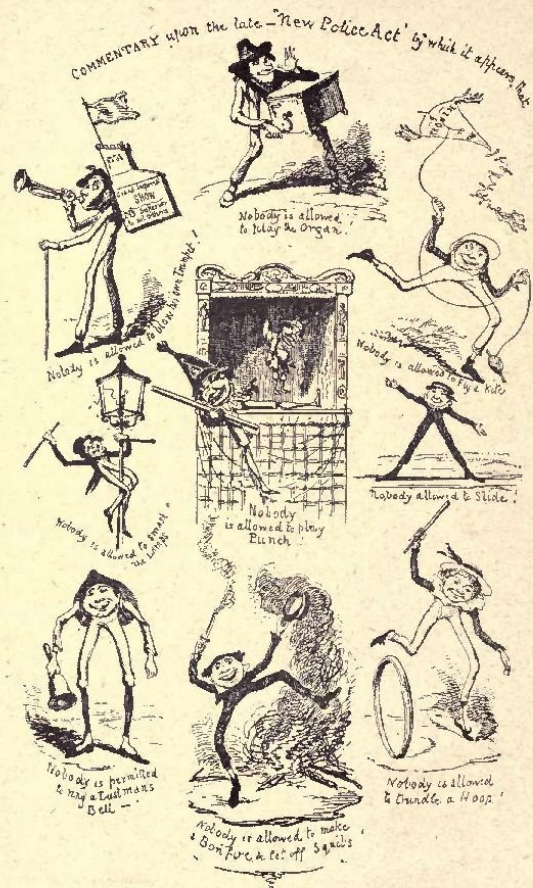 COMMENTARY upon the late - "New Police Act" by which it appears, that
Nobody is allowed
to play the Organ!
SHOW
Nobody is allowed to blow his own Trumpet!
Nobody is allowed to Fly a Kite
Nobody is allowed to Smash
the Lamps
Nobody
is allowed to play
Punch!
Nobody allowed to Slide!
Nobody is permitted
to ring a Dustmans
Bell -
Nobody is allowed to make
a Bonfire, & let off Squibs
Nobody is allowed
to trundle a Hoop!